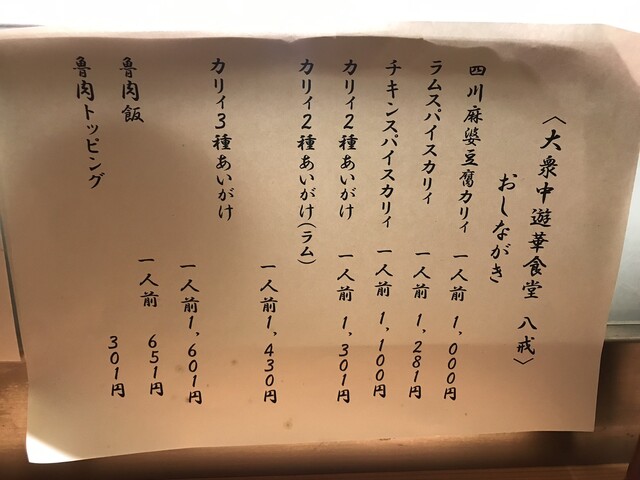 〈大衆中遊華食堂 八戒〉
おしながき
四川麻婆豆腐カリィ 一人前 1,000円
ラムスパイスカリィ 一人前 1,281円
チキンスパイスカリィ 一人前 1,100円
カリィ2種あいがけ 一人前 1,301円
カリィ2種あいがけ(ラム) 一人前1,430円
カリィ3種あいがけ 一人前1,601円
魯肉飯 一人前 651円
魯肉トッピング 301円